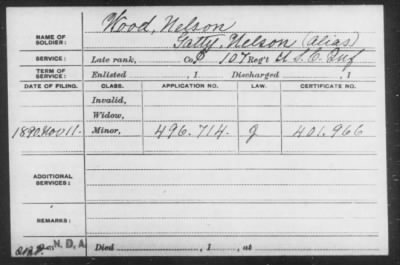 NAME OF SOLDIER: Wood, Nelson
Gatty, Nelson (Alias)
SERVICE: Late rank, Co. 107 Reg't U.S.C. Inf
TERM OF SERVICE: Enlisted , 1 Discharged , 1
DATE OF FILING. CLASS. APPLICATION NO. LAW. CERTIFICATE NO.
Invalid,
Widow,
1890 Nov 11. Minor, 496.714. G 401.966
ADDITIONAL SERVICES:
REMARKS:
N.D.A. Died , 1 , at